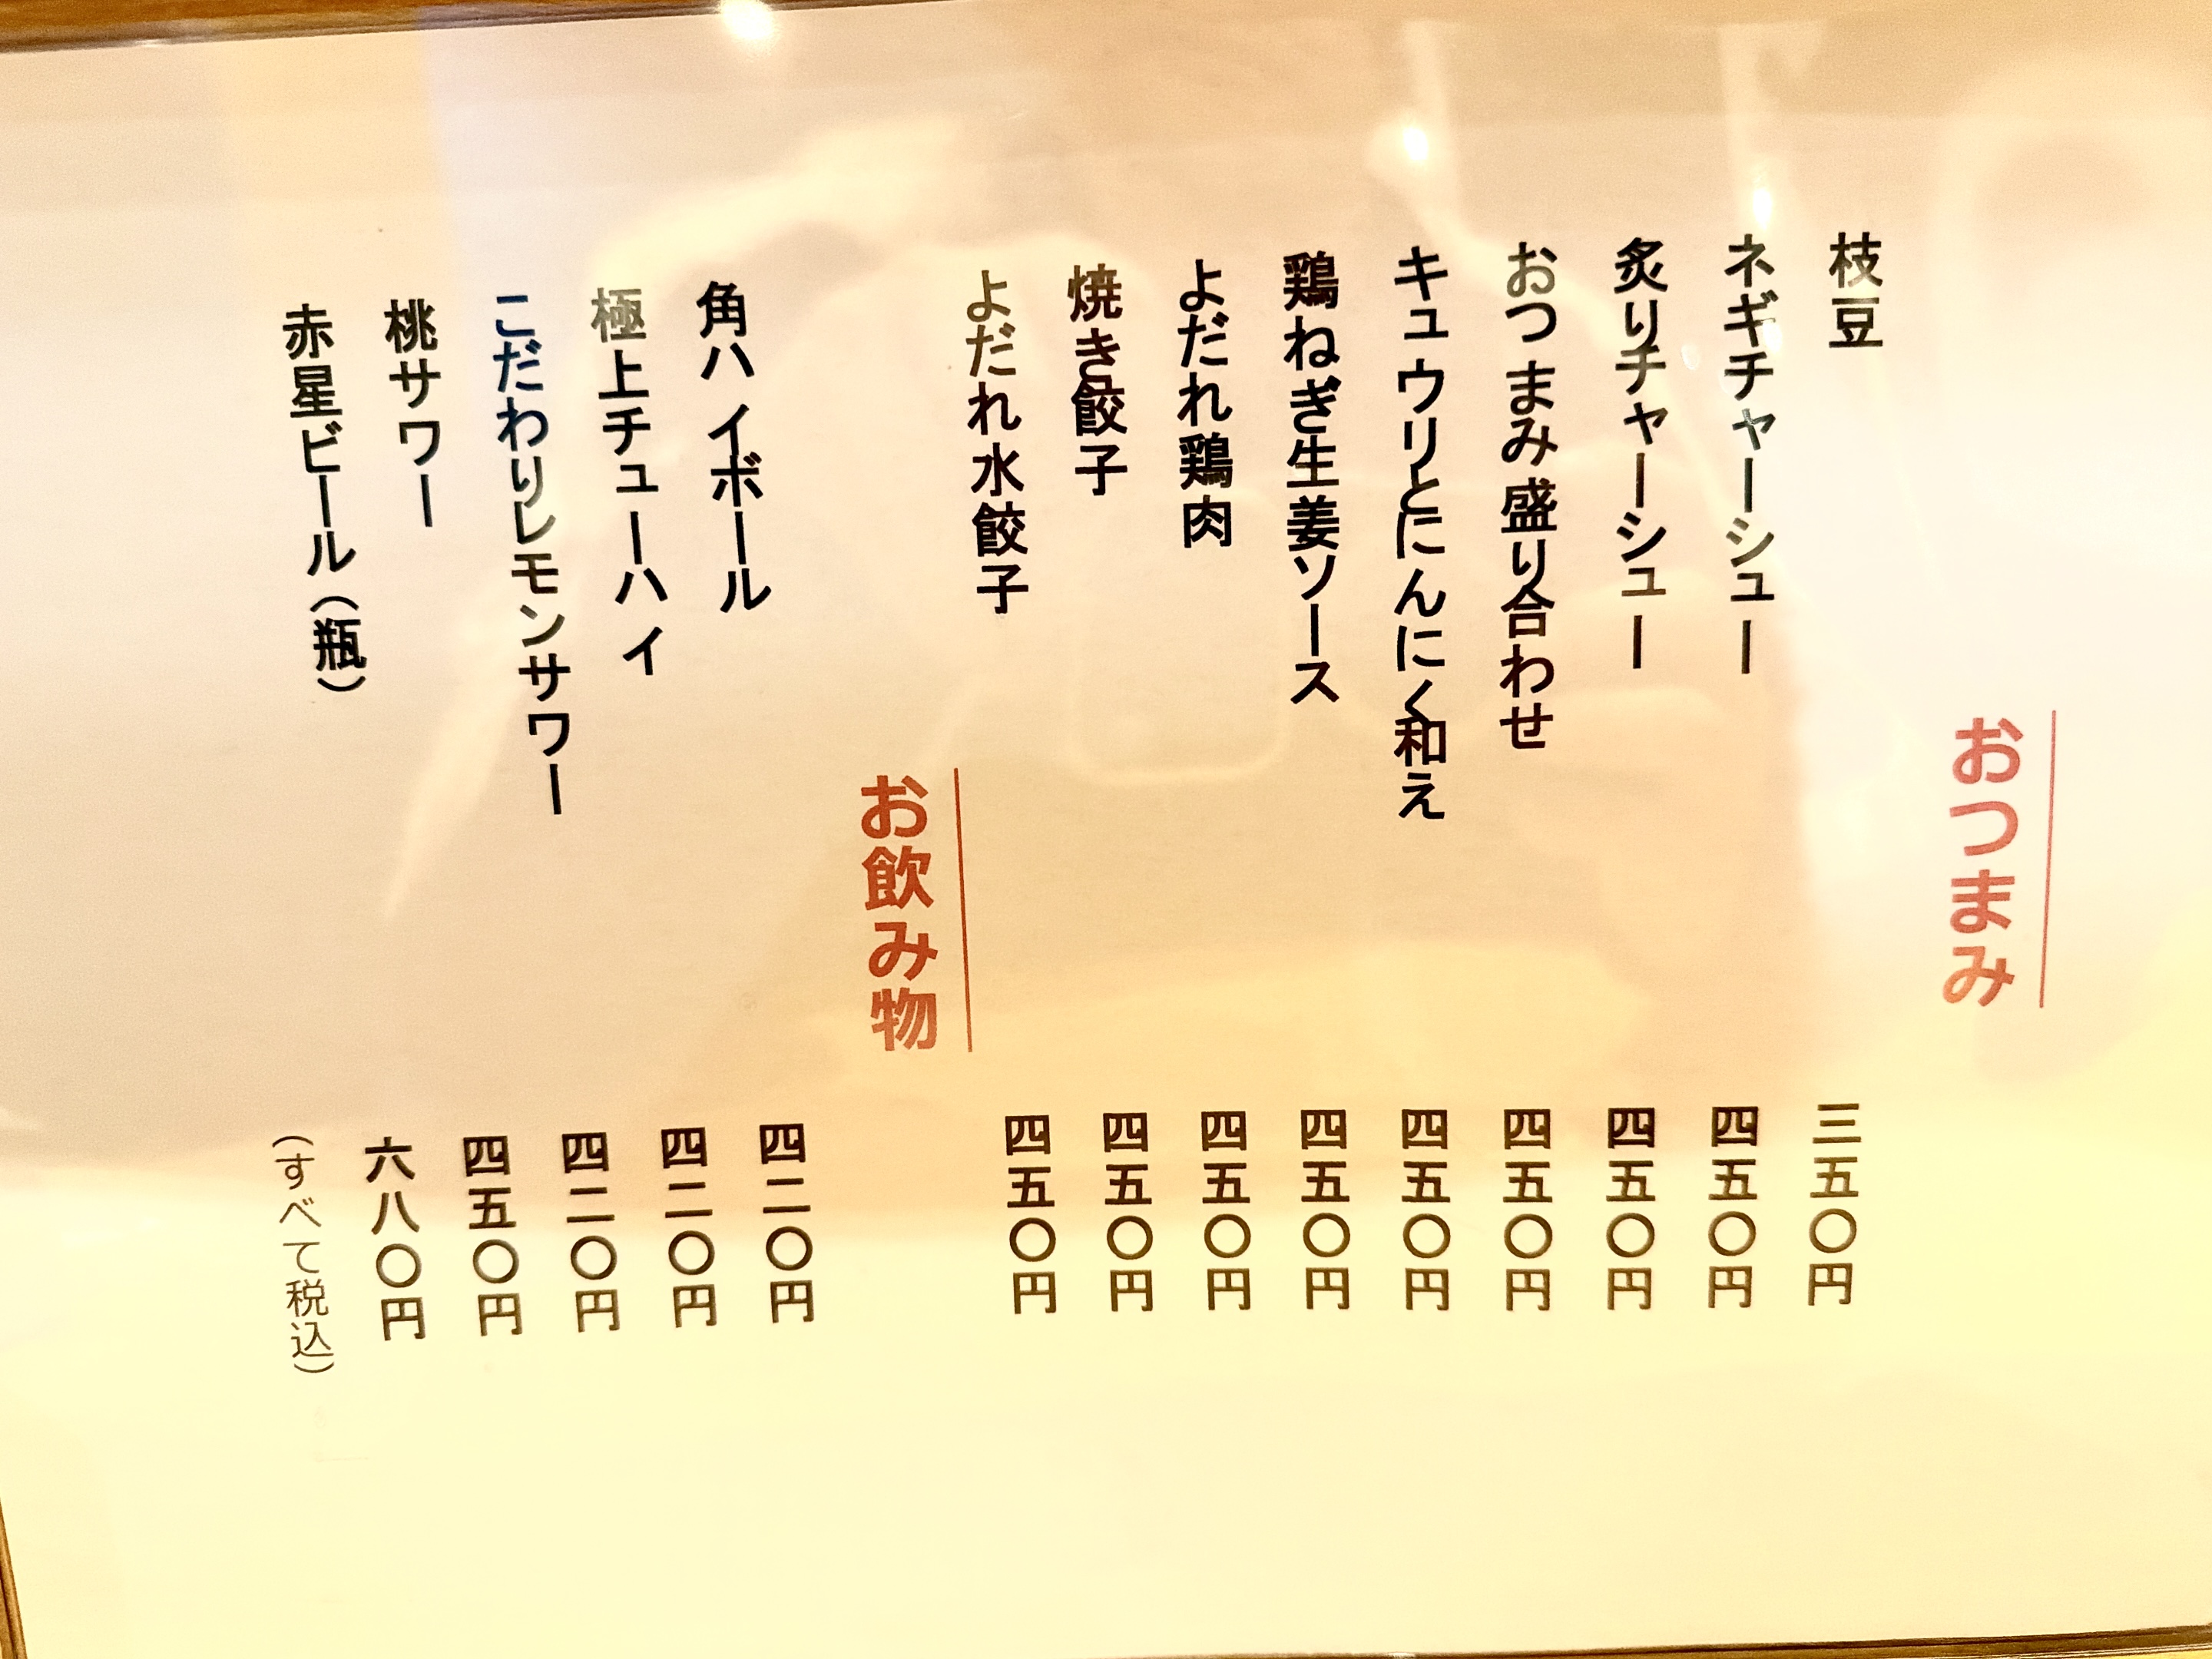 おつまみ
枝豆 三五〇円
ネギチャーシュー 四五〇円
炙りチャーシュー 四五〇円
おつまみ盛り合わせ 四五〇円
キュウリとにんにく和え 四五〇円
鶏ねぎ生姜ソース 四五〇円
よだれ鶏肉 四五〇円
焼き餃子 四五〇円
よだれ水餃子 四五〇円
お飲み物
角ハイボール 四二〇円
極上チューハイ 四二〇円
こだわりレモンサワー 四二〇円
桃サワー 四五〇円
赤星ビール（瓶） 六八〇円
（すべて税込）